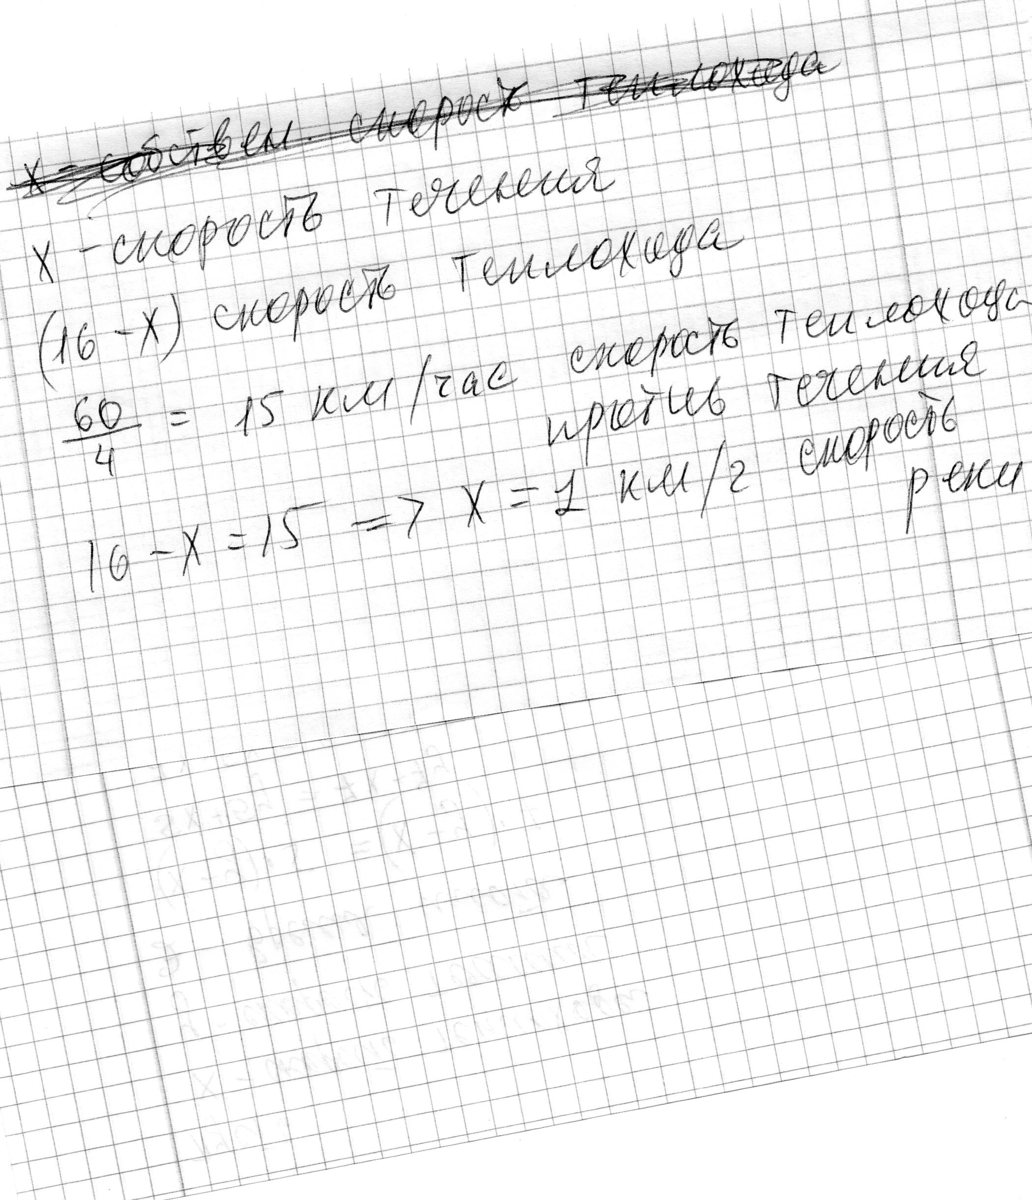 х - собствен. скорость теплохода
х - скорость течения
(16 - х) скорость теплохода
60/4 = 15 км/час скорость теплохода
против течения
16 - х = 15 => х = 1 км/г скорость
реки